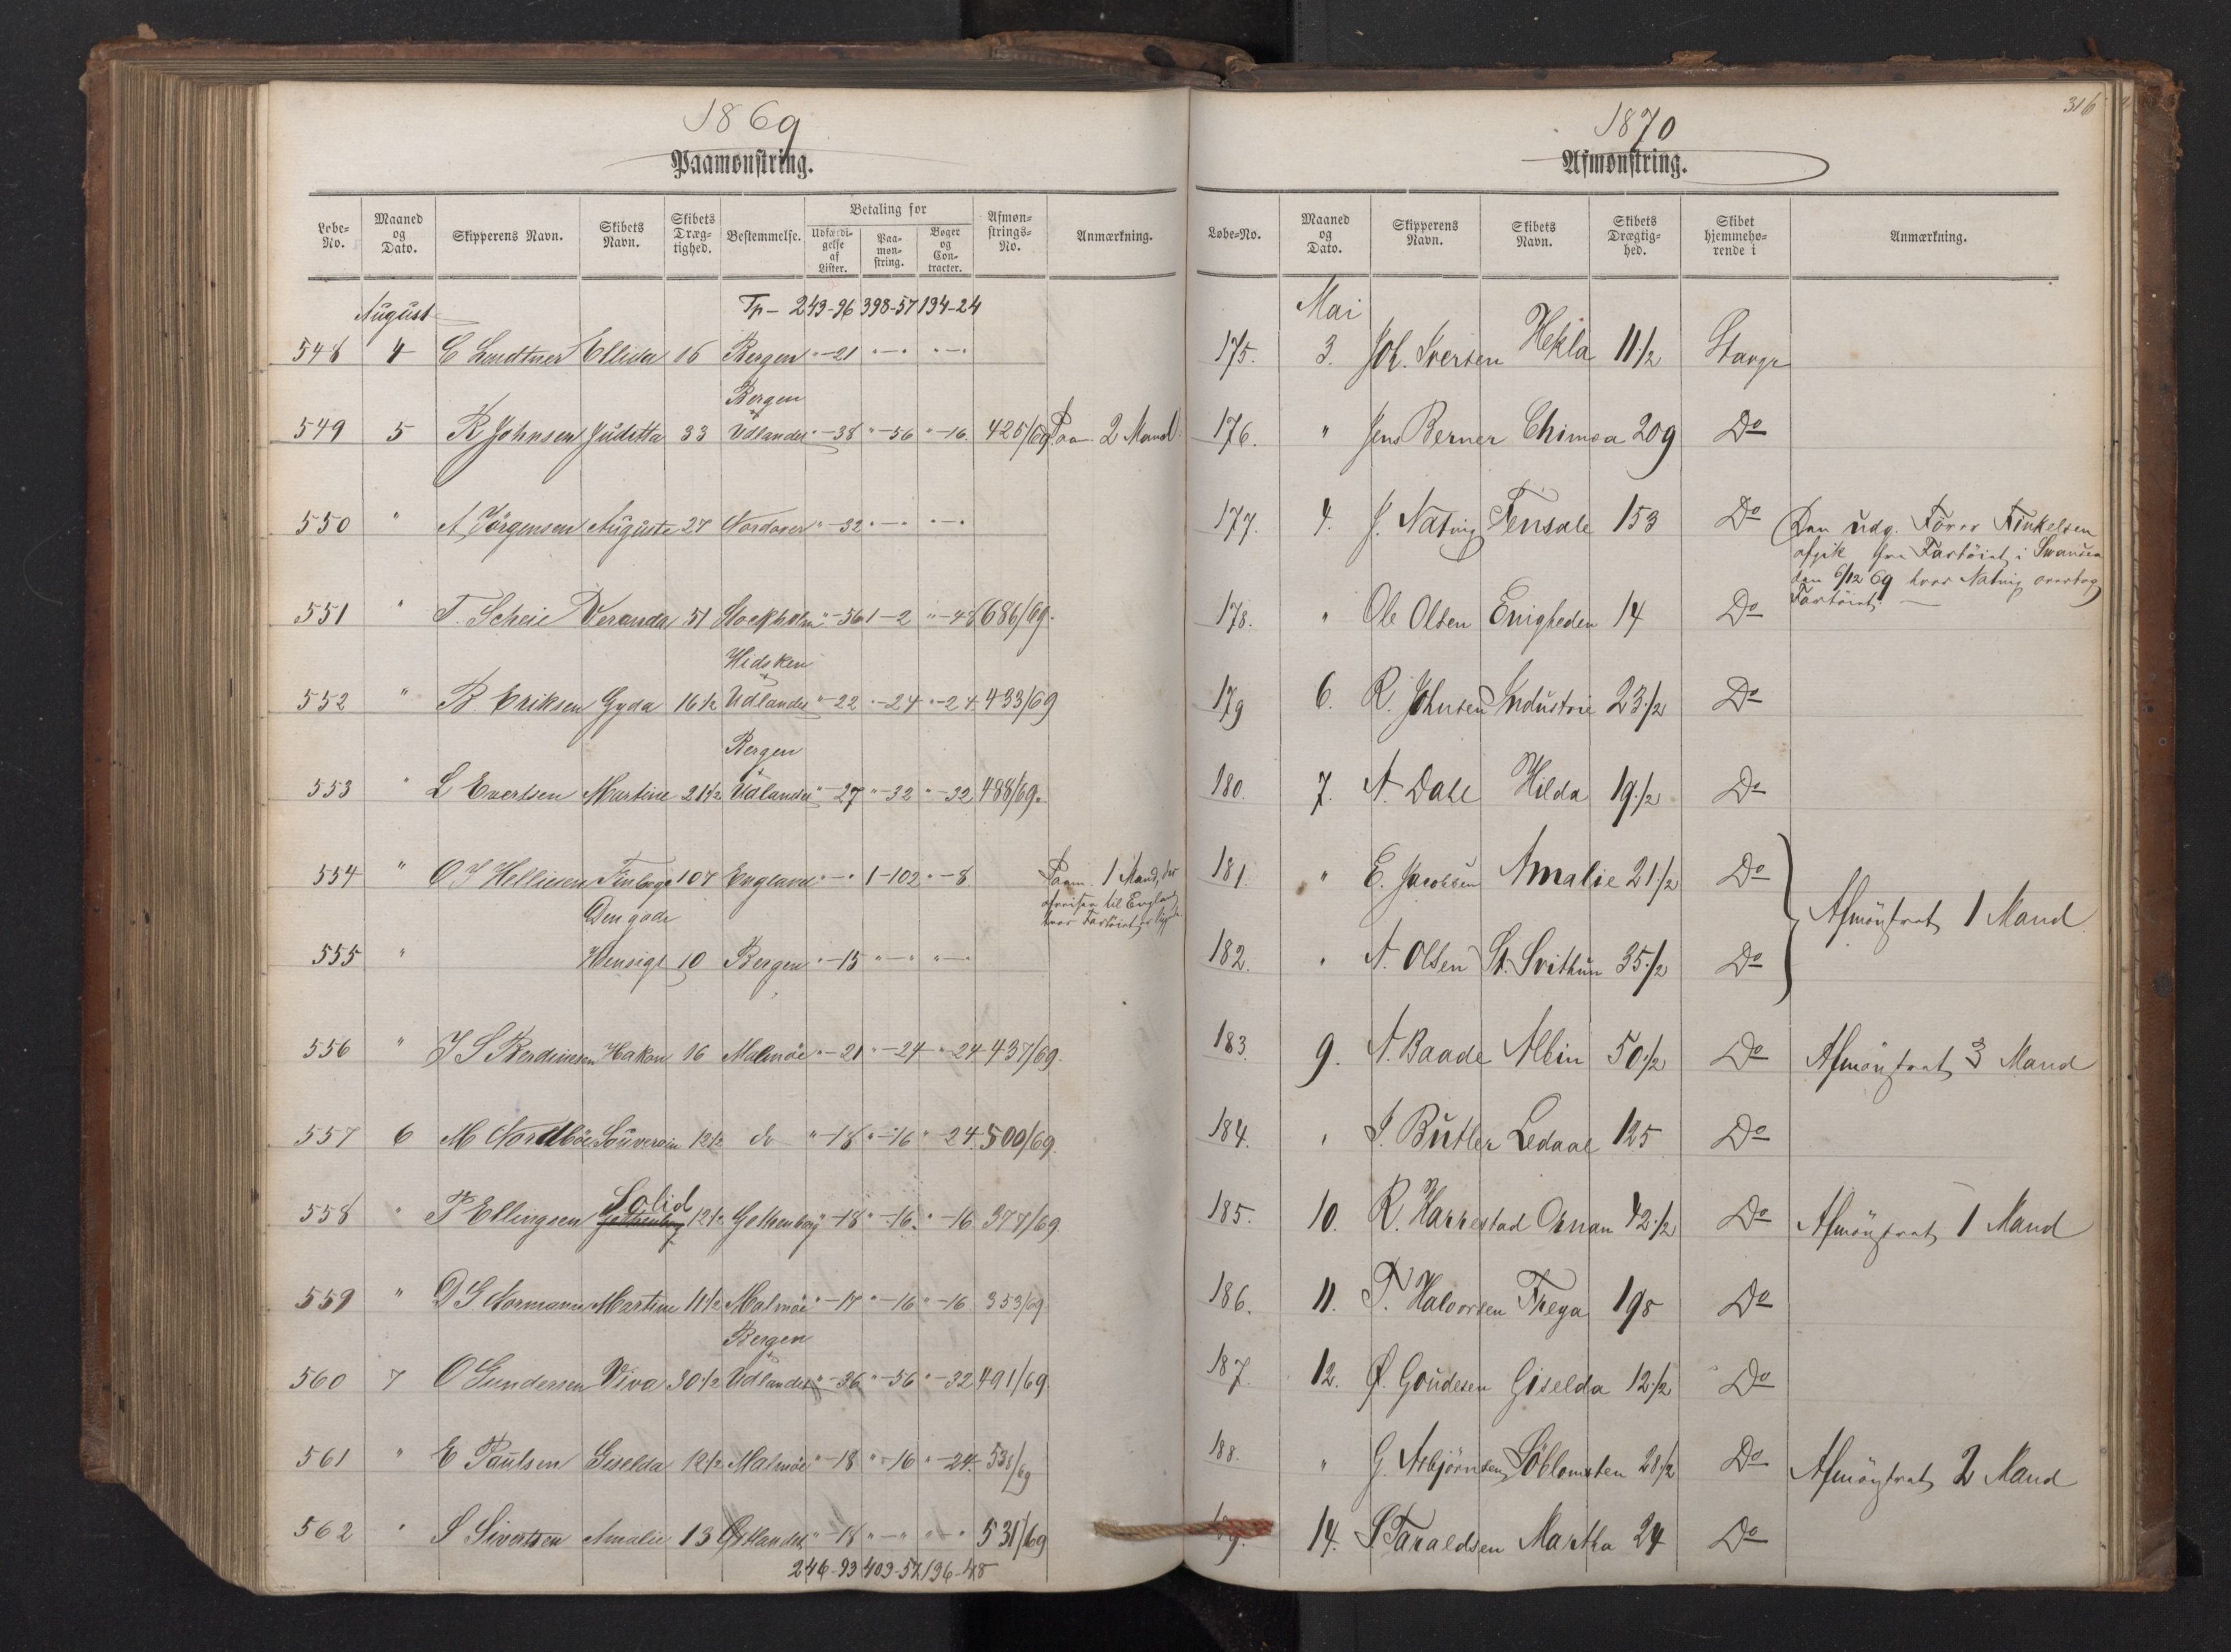 1869
Paamønstring.
Løbe-No. Maaned og Dato. Skipperens Navn. Skibets Navn. Skibets Dræg-tighed. Bestemmelse. Betaling for Udfærdi-gelse af Lister. Paa-møn-string. Bøger og Con-tracter. Afmøn-strings-No. Anmærkning.
August Tp - 243-96 398-57 194-24
548 4 C Lundtner Ellida 16 Bergen " -21 " - " " - "
Bergen
549 5 R Johnsen Juditta 33 Udlandet " -38 " -56 " -16. 425/69 Paam. 2 Mand
550 " A Jörgensen Auguste 27 " -32 " - " " - "
551 " T. Scheie Veranda 51 Stockholm " -56 1 -2 " -48 686/69.
552 " B Eriksen Gyda 16 1/2 Udlandet " -22 " -24 " -24 433/69
Bergen
553 " L Evertsen Martine 21 1/2 Udlandet " -27 " -32 " -32 488/69.
554 " O J Helliesen 107 England " - " 1-102 " -8. Paam. 1 Mand, der
afreiser til England
hvor Fartöiet er
Den gode
555 " Hensigt 10 Bergen " -15 " - " " - "
556 " J S Hakon 16 Malmöe " -21 " -24 " -24 437/69.
557 6 M Nordböe Souverain 12 1/2 do " -18 " -16 " 24. 500/69.
Solid
558 " P Ellingsen Gothenborg 12 1/2 Gothenborg " -18 " -16. " -16 377/69.
559 " D G Normann Martine 11 1/2 Malmöe " -17 " -16 " -16 353/69
Bergen
560 7 O Gundersen Viva 30 1/2 Udlandet " -36 " -56 " -32 491/69
561 " E Paulsen Giselda 12 1/2 Malmöe " -18 " -16 " -24. 538/69
562 " S Sivertsen Amalie 13 Östlandet " -18 " - " " - " 531/69
246-93 403-57 196-48
316
1870
Afmønstring.
Løbe-No. Maaned og Dato. Skipperens Navn. Skibets Navn. Skibets Drægtig-hed. Skibet hjemmehø-rende i Anmærkning.
Mai
175. 3. Joh. Iversen Hekla 11 1/2 Stavgr
176. " Jens Berner Chimæa 209 Do
177. 4. J. Natvig Fensale 153 Do Den udg. Förer Finkelsen
afgik fra Fartöiet i Swansea
den 6/12 69 hvor Natvig overtog
Fartöiet. —
178. " Ole Olsen Enigheden 14 Do
179 6. R. Johnsen Industrie 23 1/2 Do
180. 7. A. Dahl Hilda 19 1/2 Do
181. " E. Jacobsen Amalie 21 1/2 Do
Afmönstret 1 Mand
182. " A. Olsen St. Svithun 35 1/2 Do
183. 9. A. Baade Albin 50 1/2 Do Afmönstret 3 Mand
184. " J. Butler Ledaal 125 Do
185. 10. R. Harrestad Ornan 42 1/2 Do Afmönstret 1 Mand
186. 11. T. Halvorsen Freya 198 Do
187. 12. Goudesen Giselda 12 1/2 Do
188. " G. Asbjörnsen Söblomsten 28 1/2 Do Afmönstret 2 Mand
189. 14. S. Taraldsen Martha 24 Do